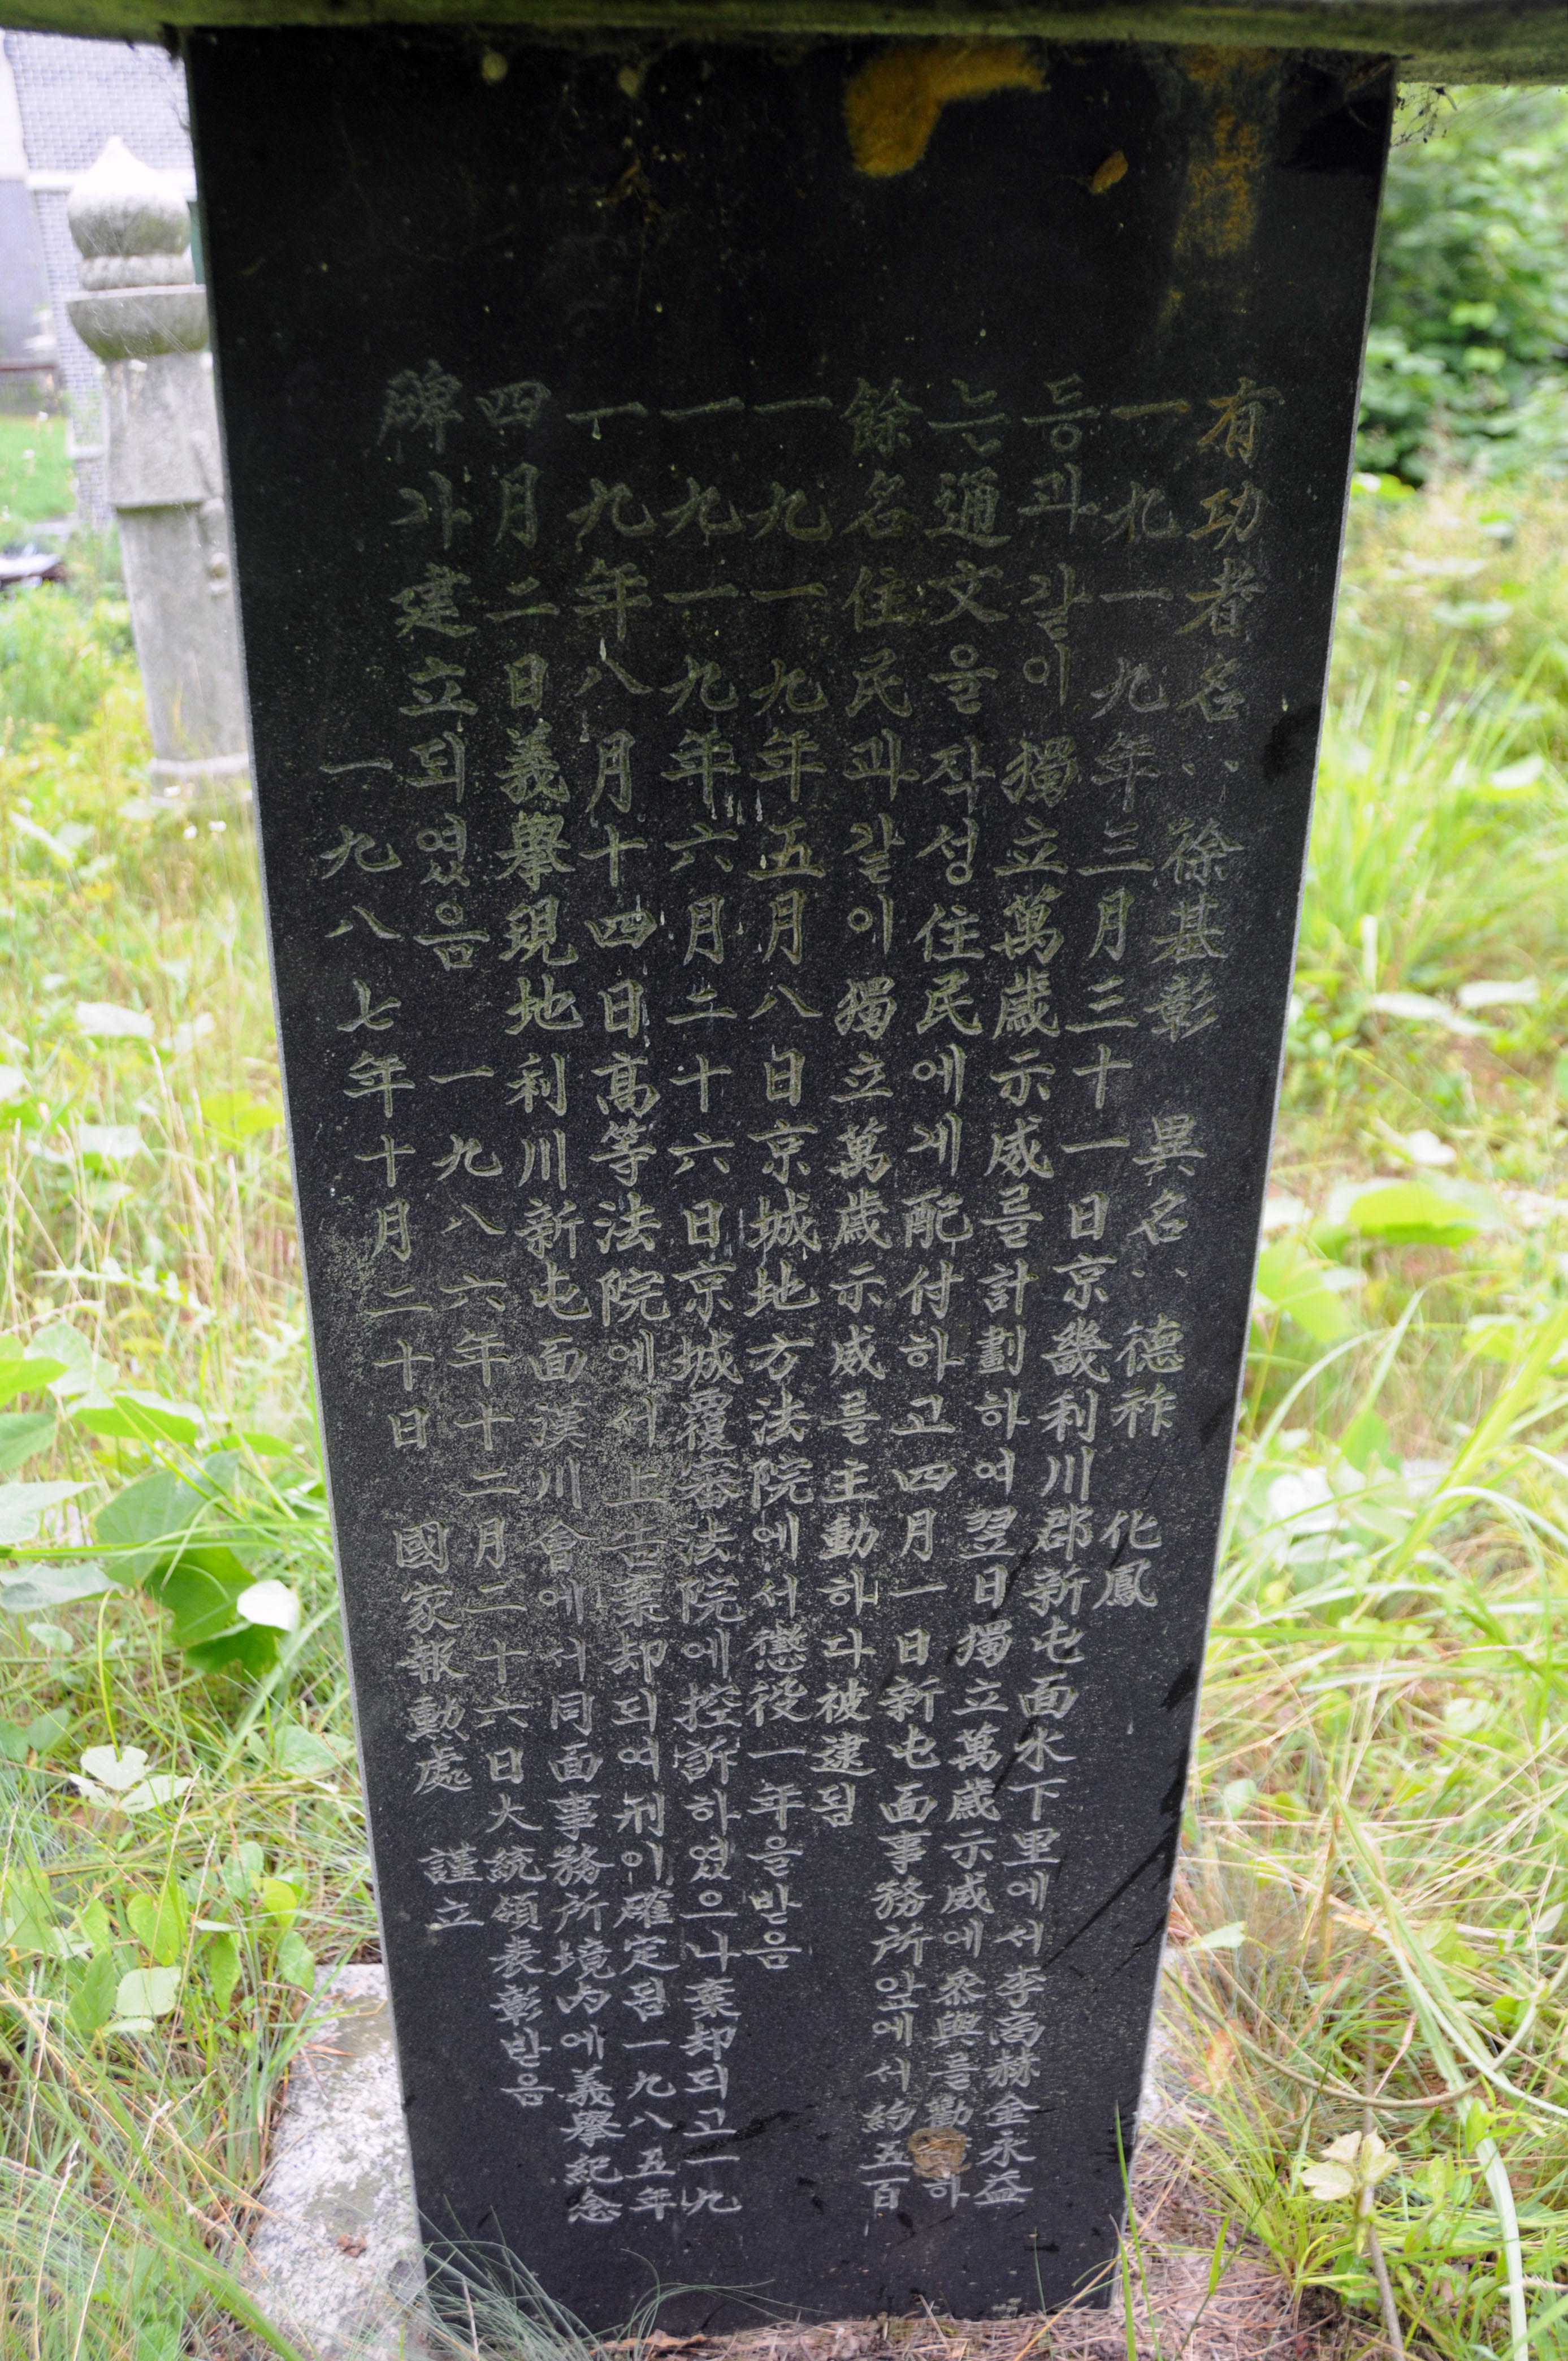 有功者名: 徐基彰 異名: 德祚 化鳳
一九一九年三月三十一日京畿利川郡新屯面水下里에서李商赫金永益
등과같이獨立萬歲示威를計劃하여翌日獨立萬歲示威에參與를勸하
는通文을작성住民에게配付하고四月一日新屯面事務所앞에서約五百
餘名住民과같이獨立萬歲示威를主動하다被逮됨
一九一九年五月八日京城地方法院에서懲役一年을받음
一九一九年六月二十六日京城覆審法院에控訴하였으나棄却되고一九
一九年八月十四日高等法院에서上告棄却되여刑이確定됨一九八五年
四月二日義擧現地利川新屯面漢川會에서同面事務所境內에義擧紀念
碑가建立되였음 一九八六年十二月二十六日大統領表彰받음
一九八七年十月二十日 國家報勳處 謹立